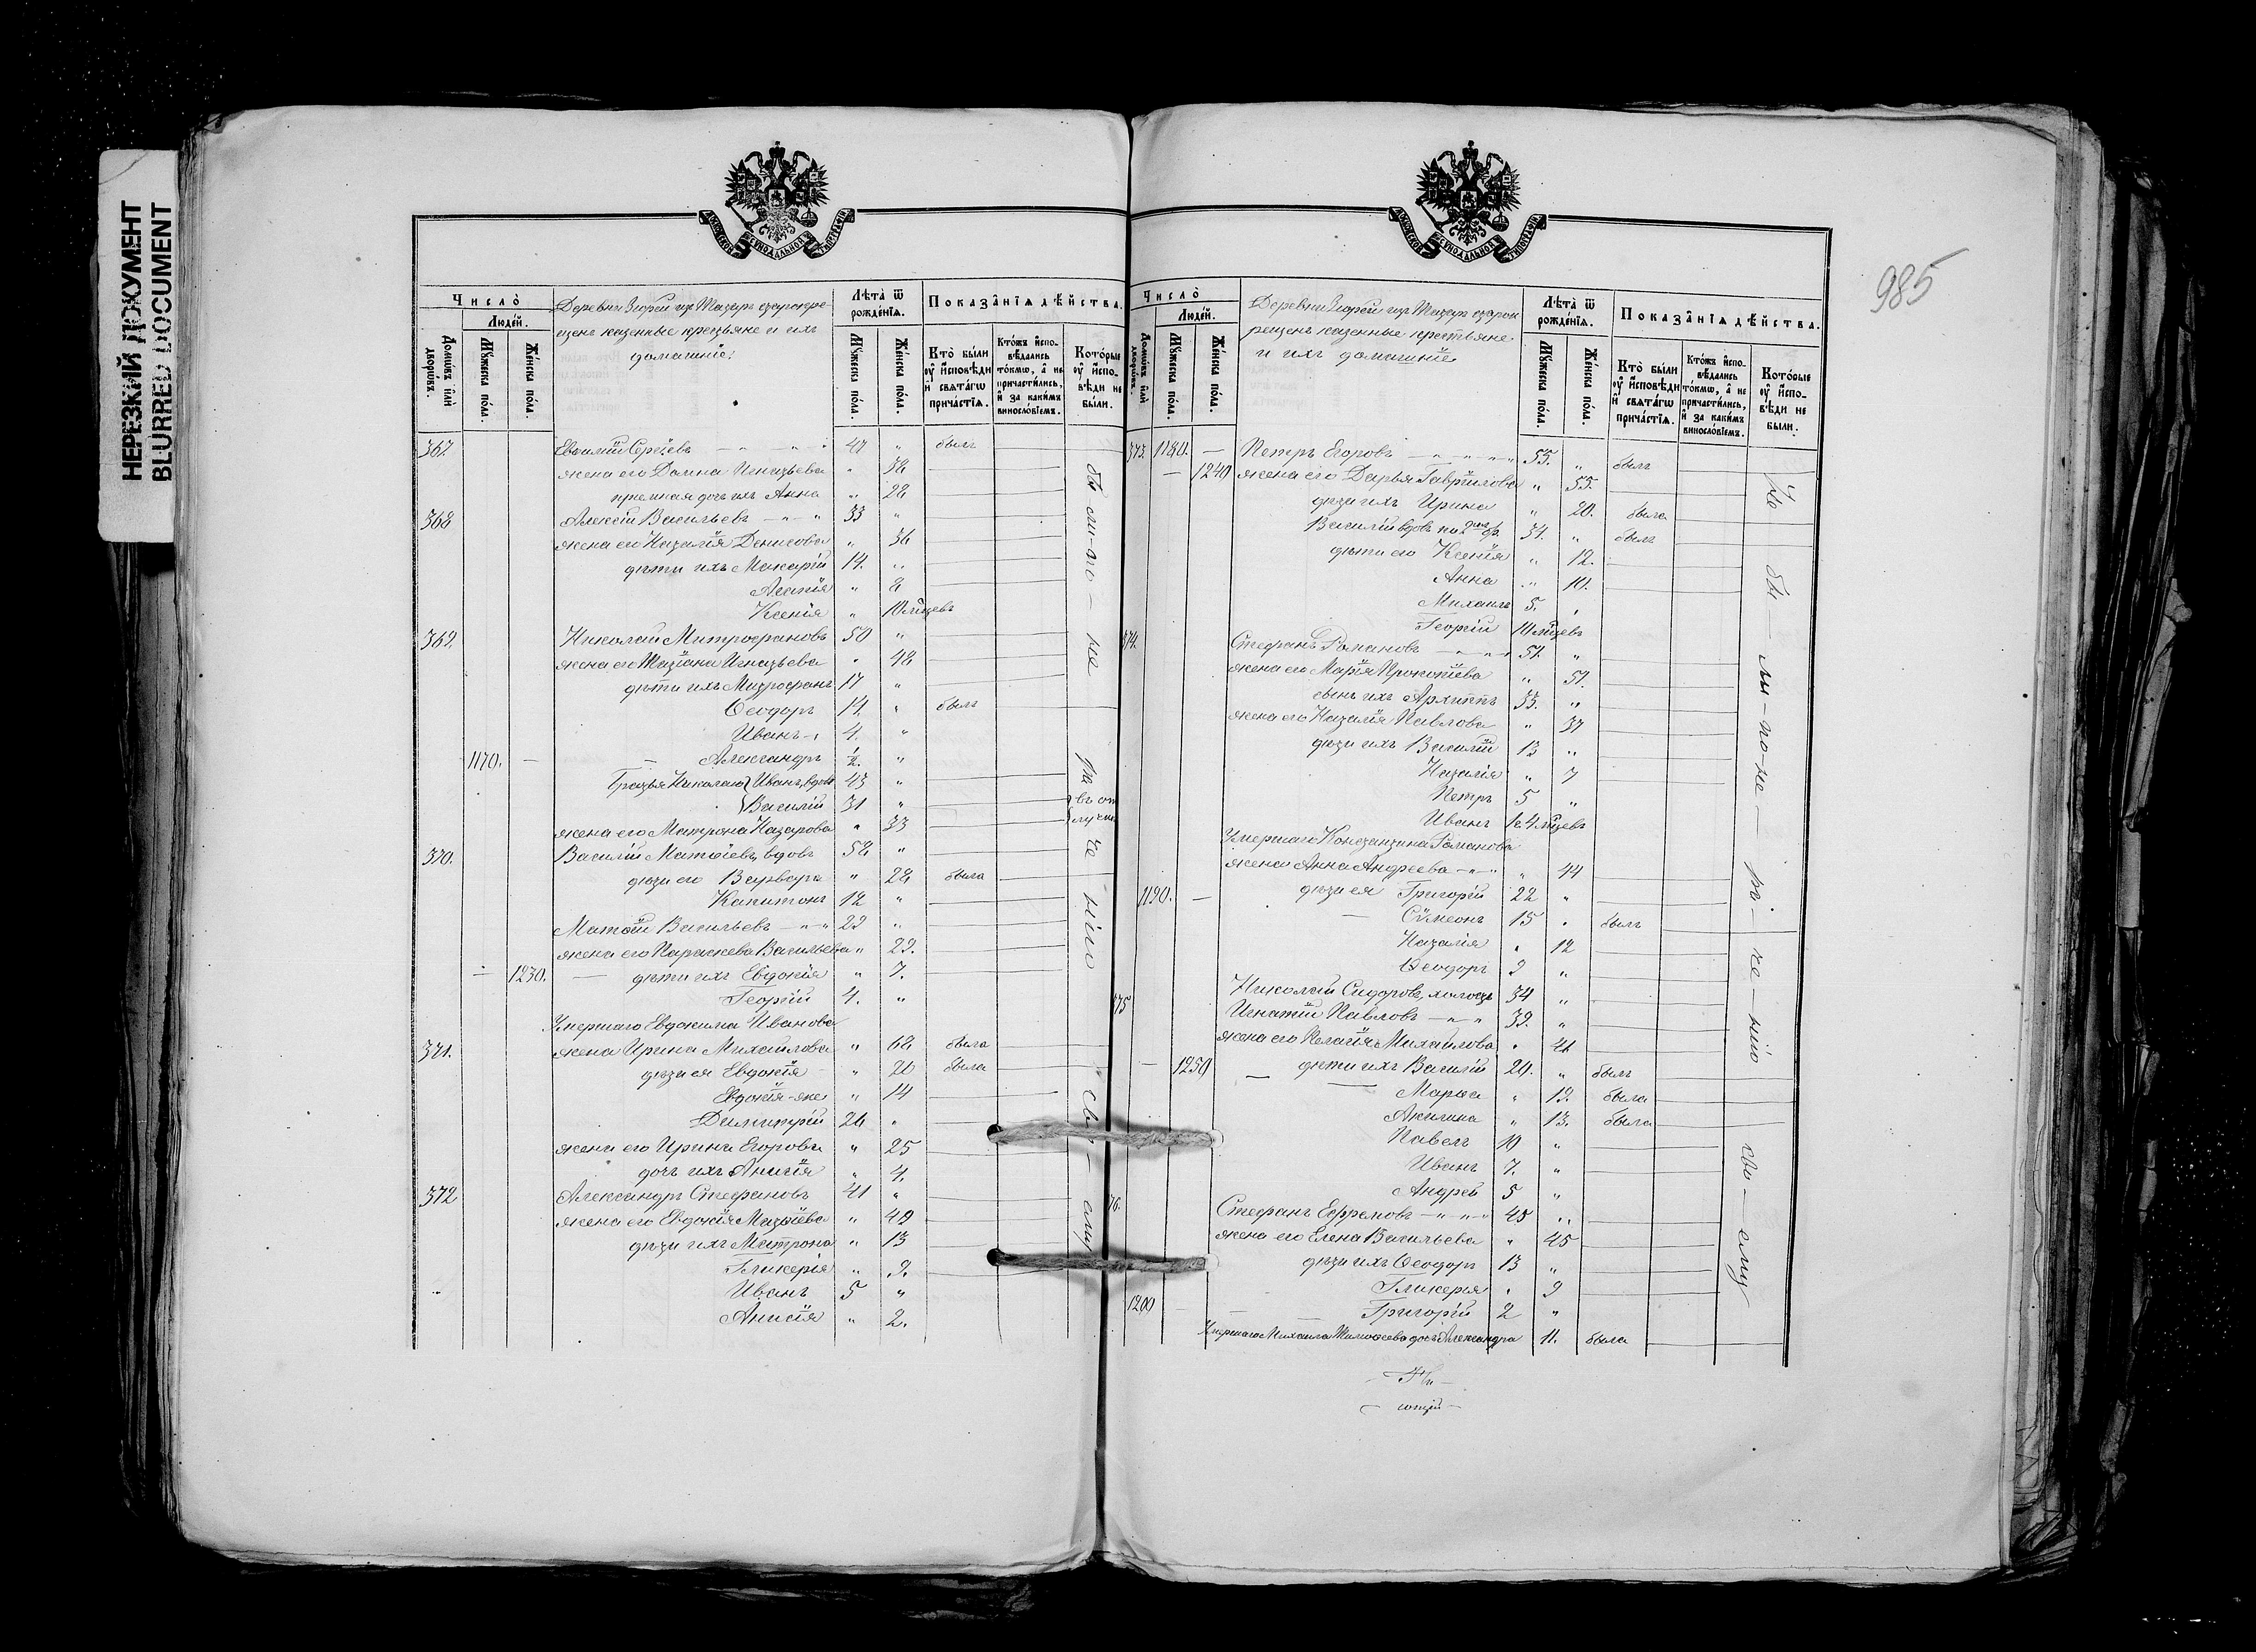 НЕРЕЗКИЙ ДОКУМЕНТ
BLURRED DOCUMENT
985
МОСКОВСКОЙ СѴНОДАЛЬНОЙ ТИПОГРАФІИ
Число̀
Людéй.
Домѡ́въ и҆лѝ дворѡ́въ.
Мꙋ́жеска по́ла.
Же́нска по́ла.
Деревни Зюреи изъ Татаръ старокре-
щенъ казенные крестьяне и ихъ
домашніе.
Лѣ́та ѿ рожде́нїѧ.
Мꙋ́жеска по́ла.
Же́нска по́ла.
Показа̑нїѧ дѣ́йства.
Кто̀ бы́ли оу҆ и҆сповѣ́ди и҆ свѧта́гѡ прича́стїѧ.
Кто́жъ и҆спо-вѣ́дались то́кмѡ, а҆ не причасти́лись, и҆ за каки́мъ винослові́емъ.
Кото́рые оу҆ и҆спо-вѣ́ди не бы́ли.
367 Евѳимій Сергѣевъ 47 " былъ
жена его Домна Игнатьева " 38
пріемная дочь ихъ Анна " 28
368 Алексѣй Васильевъ 33 "
жена его Наталія Денисова " 36
дѣти ихъ Макарій 14. "
" 8
Ксенія " 10 мѣсцевъ
369 Николай Митрофановъ 50 "
жена его Татіана Игнатьева " 48
дѣти ихъ Митрофанъ 17 "
Ѳеодоръ 14 " былъ
Иванъ 4. "
1170. — Александръ ½. "
Братья Николаю Иванъ, вдовъ 43 "
Василій 31 " въ от лучкѣ
жена его Матрона Назарова " 33
370. Василій Матвѣевъ, вдовъ 58 "
дѣти его Варвара " 28 была
Капитонъ 12 "
Матѳій Васильевъ 29 "
жена его Параскева Васильева " 29.
— 1230. — дѣти ихъ Евдокія " 7.
Георгій 4. "
Умершаго Евдокима Иванова
371. жена Ирина Михайлова " 68 была
дѣти ея Евдокія " 20 была
Евдокія-же " 14
Димитрій 26 "
жена его Ирина Егорова " 25
дочь ихъ Анисія " 4.
372 Александръ Стефановъ 41 "
жена его Евдокія " 49
дѣти ихъ Матрона " 13
Гликерія " 9.
Иванъ 5 "
Анисія " 2.
бы-ли-по-не ра че нію сво-ему
Число̀
Людéй.
Домѡ́въ и҆лѝ дворѡ́въ.
Мꙋ́жеска по́ла.
Же́нска по́ла.
Деревни Зюреи изъ Татаръ старок
рещенъ казенные крестьяне
и ихъ домашніе
Лѣ́та ѿ рожде́нїѧ.
Мꙋ́жеска по́ла.
Же́нска по́ла.
Показа̑нїѧ дѣ́йства.
Кто̀ бы́ли оу҆ и҆сповѣ́ди и҆ свѧта́гѡ прича́стїѧ.
Кто́жъ и҆спо-вѣ́дались то́кмѡ, а҆ не причасти́лись, и҆ за каки́мъ винослові́емъ.
Кото́рые оу҆ и҆спо-вѣ́ди не бы́ли.
373. 1180. — Петръ Егоровъ 55. " былъ
— 1240 жена его Дарья Гавріилова " 55.
дѣти ихъ Ирина " 20. была
Василій вдовъ по 2 34. " былъ
дѣти его Ксенія " 12.
Анна " 10.
Михаилъ 5. "
Георгій 10 мѣсцевъ
374. Стефанъ Романовъ 51. "
жена его Марія Прокопіева " 57.
сынъ ихъ Архиппъ 35. "
жена его Наталія Павлова " 37
дѣти ихъ Василій 13 "
Наталія " 7
Петръ 5 "
Иванъ 1г. 4 мѣсцевъ
Умершаго Константина Романова
жена Анна Андреева " 44
1190. — дѣти ея Григорій 22 "
— Сѵмеонъ 15 " былъ
Наталія " 12
Ѳеодоръ 9 "
Николай Сидоровъ, холостъ 34 "
375 Игнатій Павловъ 39. "
жена его Пелагія Михайлова " 41
— 1250 — дѣти ихъ Василій 20. " былъ
Марѳа " 19. была
Акилина " 13. была
Павелъ 10 "
Иванъ 7. "
Андрей 5 "
76. Стефанъ Ефремовъ 45 "
жена его Елена Васильева " 45
дѣти ихъ Ѳеодоръ 13 "
Гликерія " 9
1200 — — Григорій 2 "
Умершаго Михаила Тимоѳеева дочь Александра 11. была
Не бы-ли-по-не-ра-че-нію сво-ему